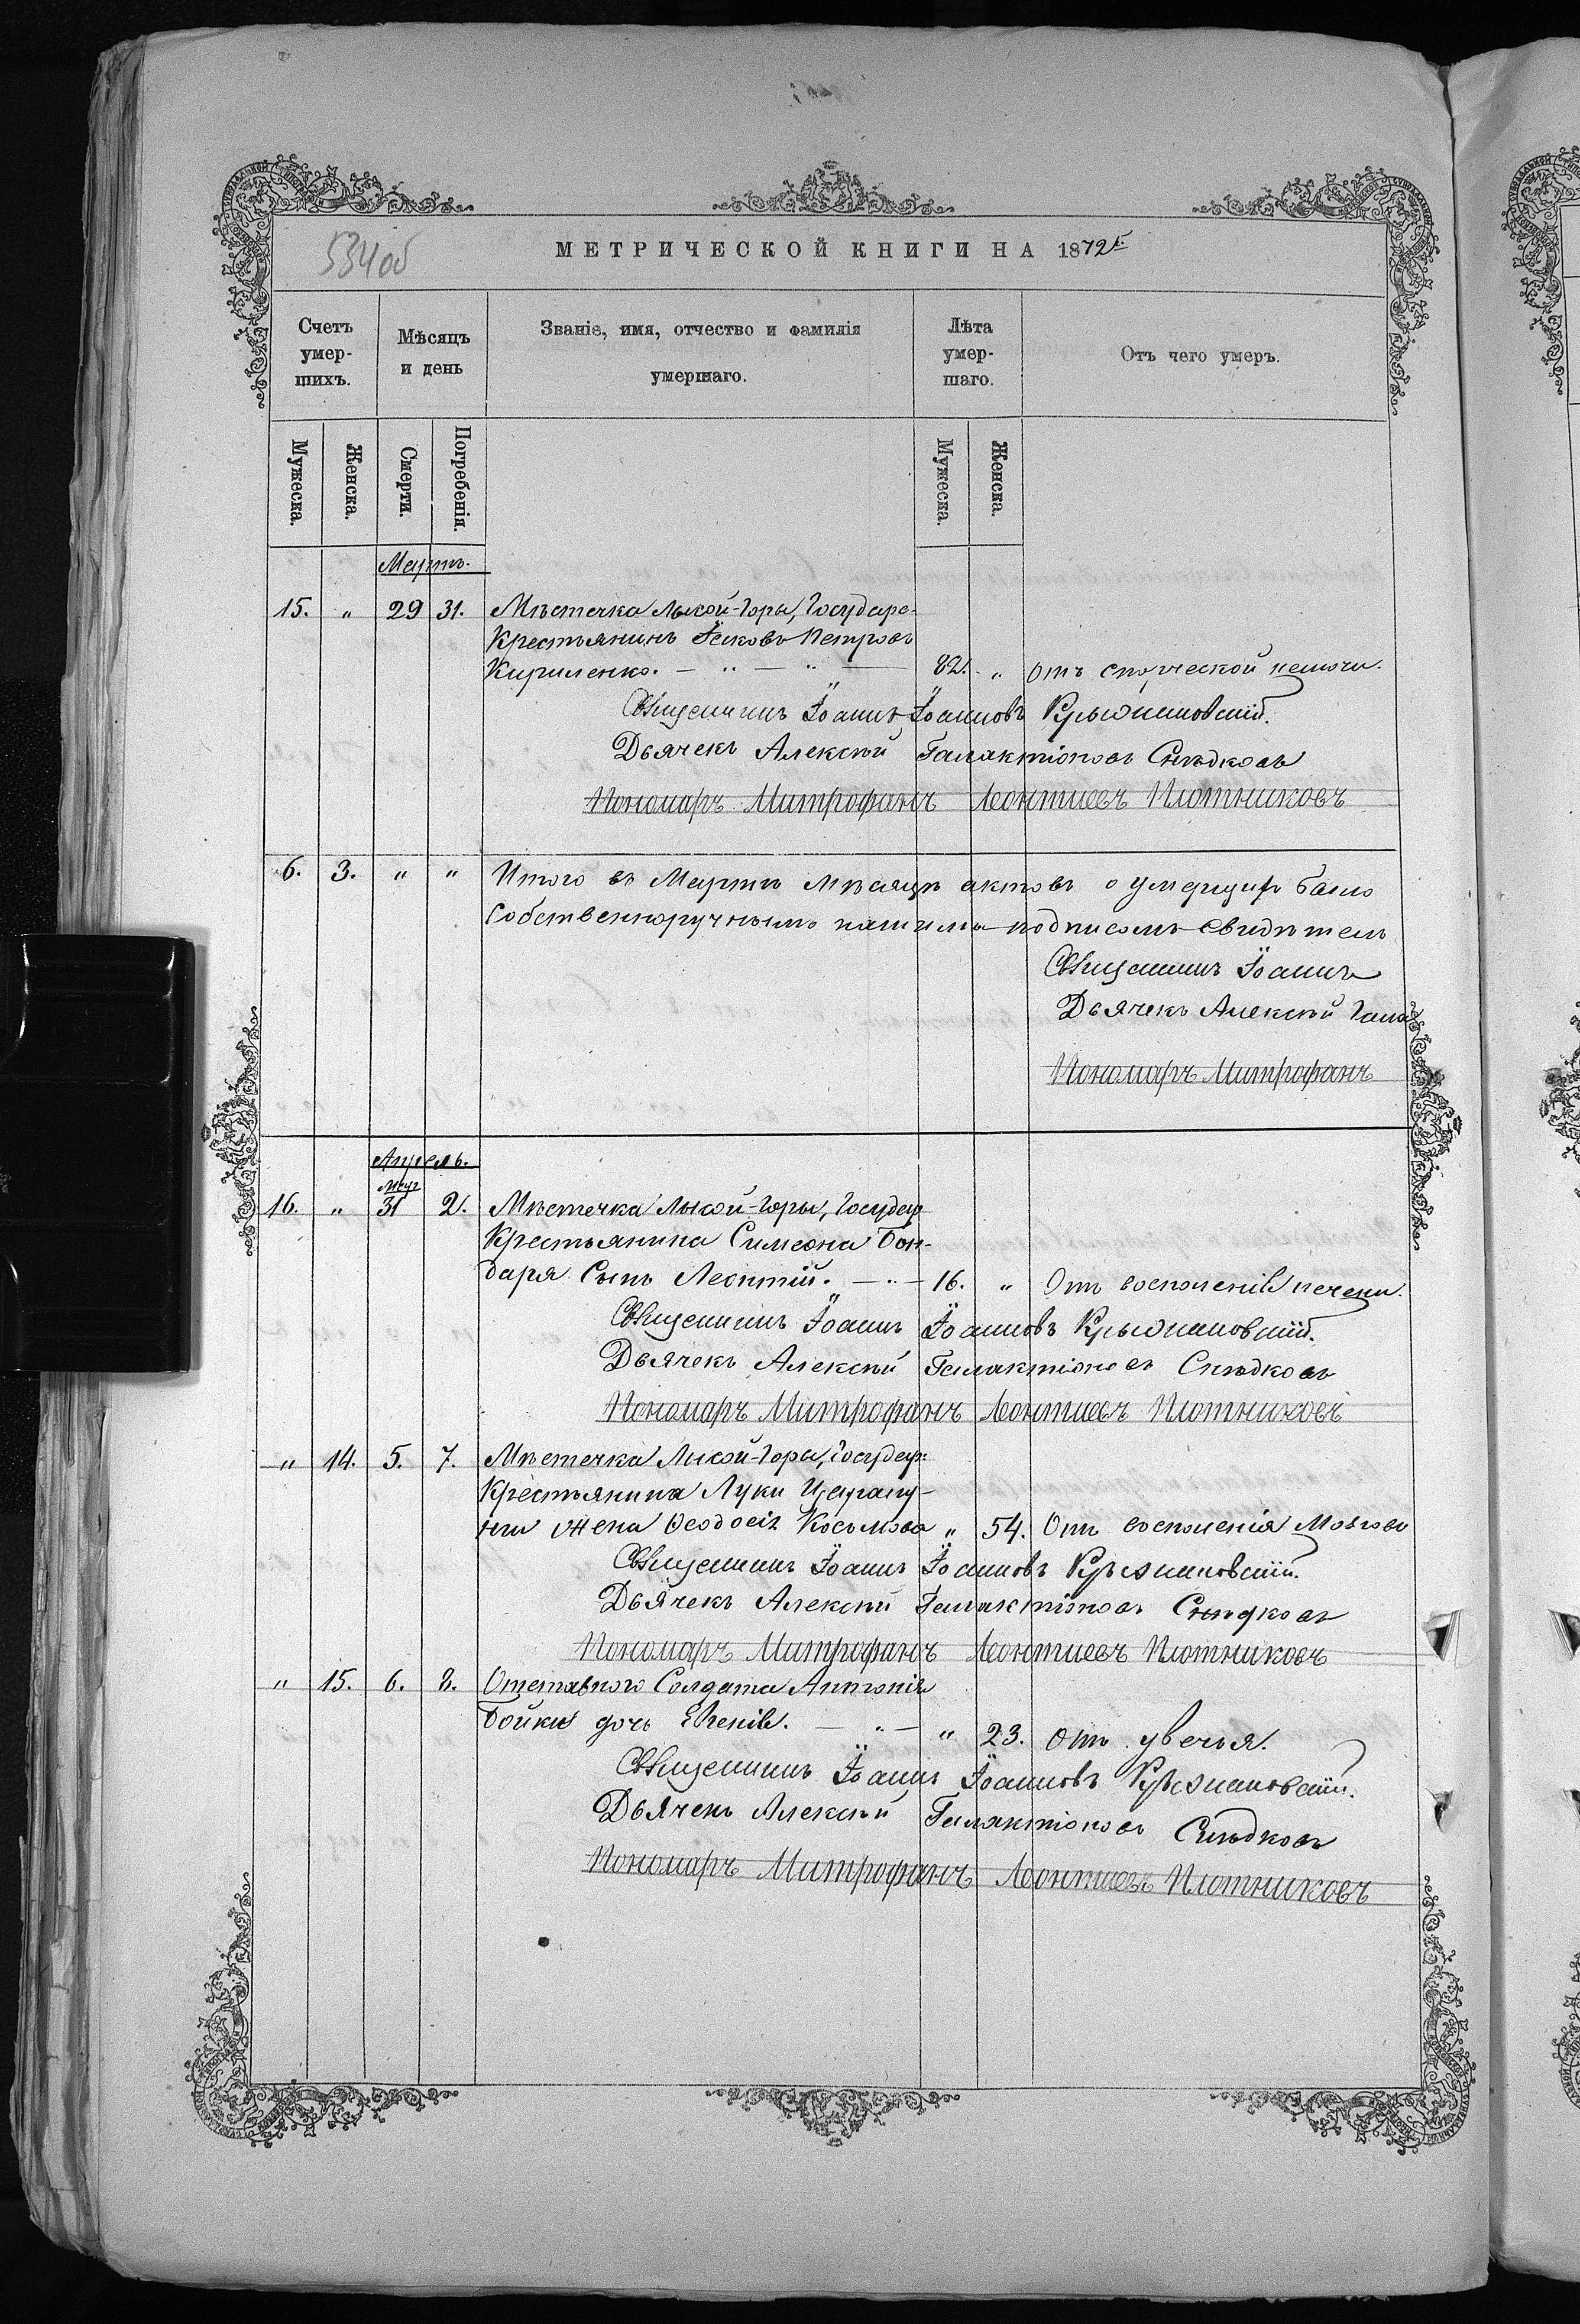 534об
МЕТРИЧЕСКОЙ КНИГИ НА 1872 г.
Счетъ умер- шихъ.
Мѣсяцъ и день
Званіе, имя, отчество и фамилія умершаго.
Лѣта умер- шаго.
Отъ чего умеръ.
Мужеска.
Женска.
Смерти.
Погребенія.
Мужеска.
Женска.
Мартъ.
15. „ 29 31. Мѣстечка Лысой-Горы, Государс-
Крестьянинъ Іяковъ Петровъ
Кириленко. 82. „ отъ старческой немочи.
Священникъ Іоаннъ Іоанновъ Крыжановскій.
Дьячекъ Алексѣй Галактіоновъ Снѣдковъ
Пономарь Митрофанъ Леонтиевъ Плотниковъ
6. 3. „ „ Итого въ Мартѣ мѣсяцѣ актовъ о умершихъ было
Собственноручнымъ нашимъ подписомъ свидѣтель
Священникъ Іоаннъ
Дьячекъ Алексѣй Гала
Пономарь Митрофанъ
Апрель.
Мар
16. „ 31 2. Мѣстечка Лысой-Горы, Государ
Крестьянина Симеона Бон-
даря Сынъ Леонтій. 16. „ Отъ воспаленія печени.
Священникъ Іоаннъ Іоанновъ Крыжановскій.
Дьячекъ Алексѣй Галактіоновъ Снѣдковъ
Пономарь Митрофанъ Леонтиевъ Плотниковъ
„ 14. 5. 7. Мѣстечка Лысой-Горы, Государ:
Крестьянина Луки
жена Ѳеодосія Косьмова „ 54. Отъ воспаленія Мозгово
Священникъ Іоаннъ Іоанновъ Крыжановскій.
Дьячекъ Алексѣй Галактіоновъ Снѣдковъ
Пономарь Митрофанъ Леонтиевъ Плотниковъ
„ 15. 6. 8. Отставного Солдата Антонія
Бойки дочь Евгенія. „ 23. Отъ увечья.
Священникъ Іоаннъ Іоанновъ Крыжановскій.
Дьячекъ Алексѣй Галактіоновъ Снѣдковъ
Пономарь Митрофанъ Леонтиевъ Плотниковъ